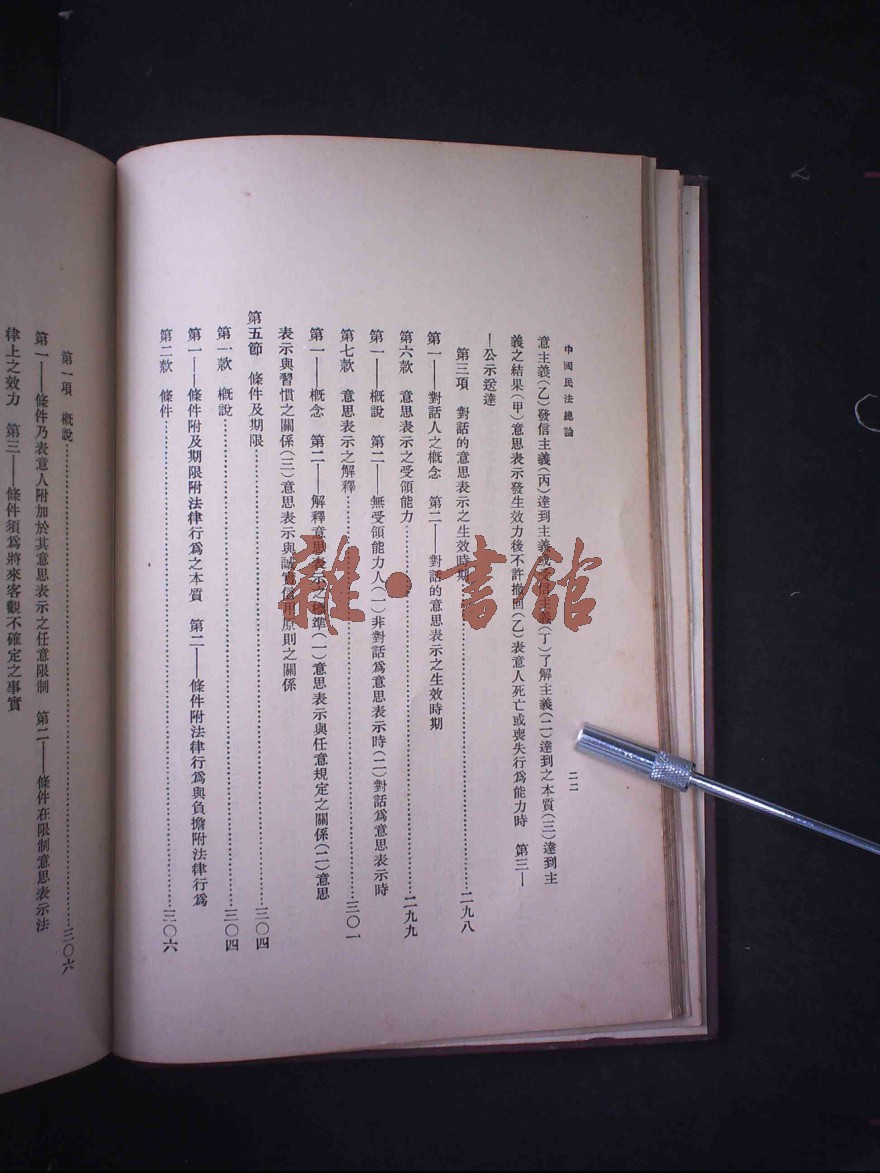 中國民法總論
二二
意主義(乙)發信主義(丙)達到主義或受信主義(丁)了解主義(二)達到之本質(三)達到主
義之結果(甲)意思表示發生效力後不許撤回(乙)表意人死亡或喪失行爲能力時　第三—
—公示送達
第三項　對話的意思表示之生效時期……二九八
第一——對話人之概念　第二——對話的意思表示之生效時期
第六款　意思表示之受領能力……二九九
第一——概說　第二——無受領能力人(一)非對話爲意思表示時(二)對話爲意思表示時
第七款　意思表示之解釋……三〇一
第一——概念　第二——解釋意思表示之標準(一)意思表示與任意規定之關係(二)意思
表示與習慣之關係(三)意思表示與誠實信用原則之關係
第五節　條件及期限……三〇四
第一款　概說……三〇四
第一——條件附及期限附法律行爲之本質　第二——條件附法律行爲與負擔附法律行爲
第二款　條件……三〇六
第一項　概說……三〇六
第一——條件乃表意人附加於其意思表示之任意限制　第二——條件在限制意思表示法
律上之效力　第三——條件須爲將來客觀不確定之事實
雜·書館